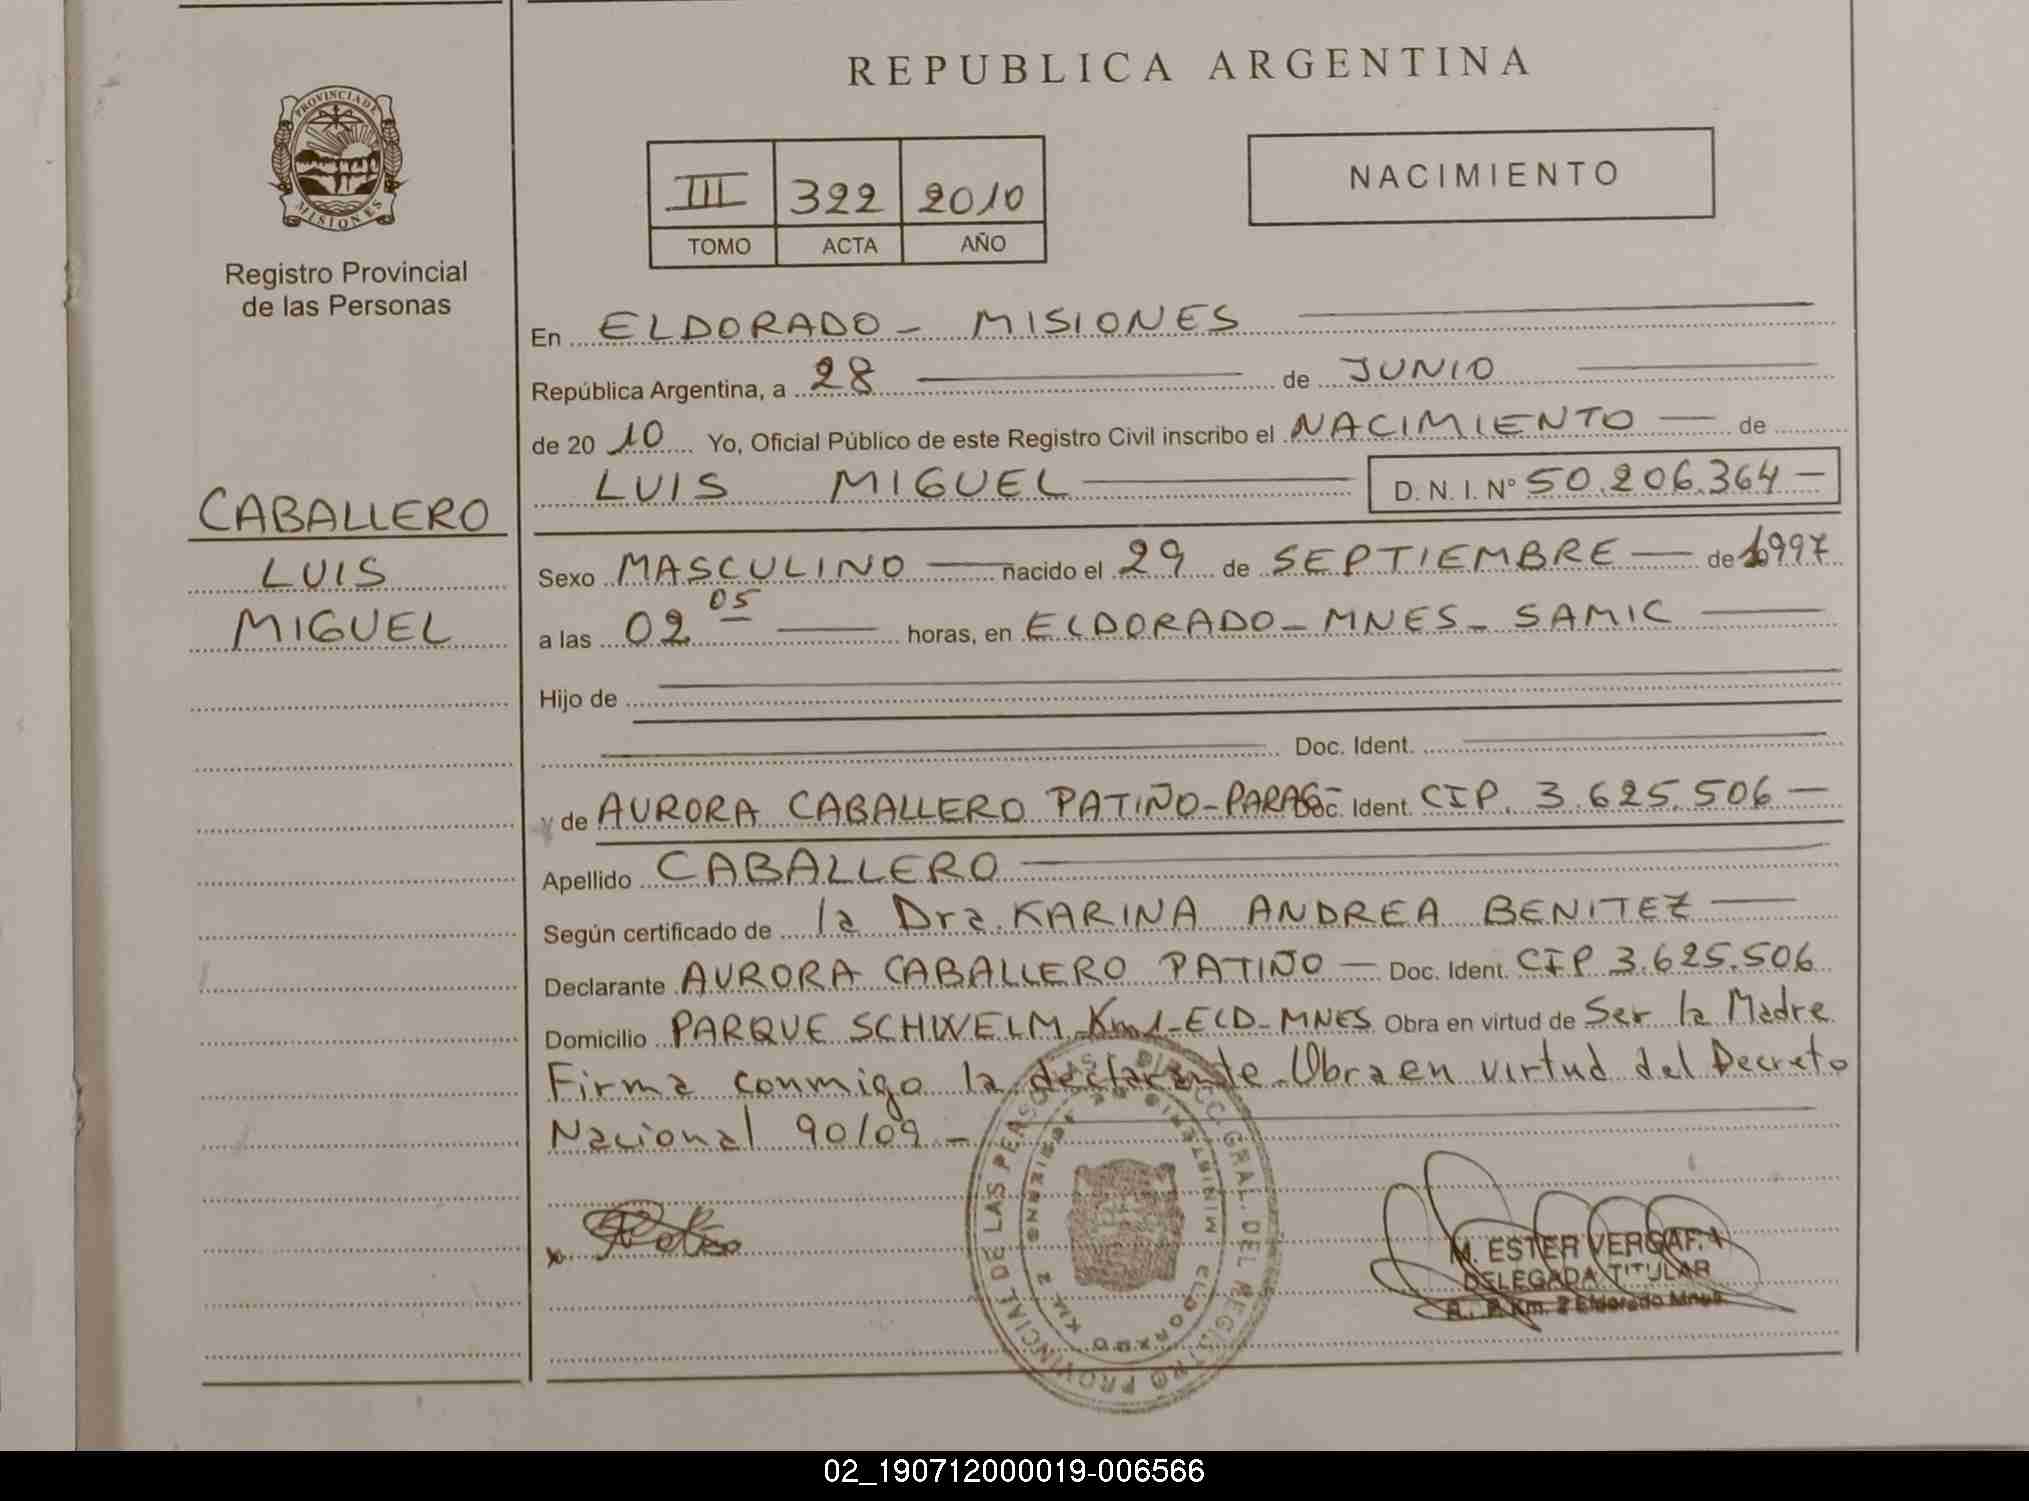 REPUBLICA ARGENTINA
PROVINCIA DE
MISIONES
Registro Provincial
de las Personas
III 322 2010
TOMO ACTA AÑO
NACIMIENTO
En ELDORADO - MISIONES
República Argentina, a 28 de JUNIO
de 20 10 Yo, Oficial Público de este Registro Civil inscribo el NACIMIENTO de
LUIS MIGUEL D. N. I. Nº 50.206.364-
CABALLERO
LUIS
MIGUEL
Sexo MASCULINO nacido el 29 de SEPTIEMBRE de 1997
a las 02 05 horas, en ELDORADO - MNES - SAMIC
Hijo de
Doc. Ident.
y de AURORA CABALLERO PATIÑO - PARAG- Doc. Ident. CIP. 3.625.506 -
Apellido CABALLERO
Según certificado de la Dra. KARINA ANDREA BENITEZ
Declarante AURORA CABALLERO PATIÑO - Doc. Ident. CIP 3.625.506
Domicilio PARQUE SCHWELM Km 1 - ELD - MNES Obra en virtud de Ser la Madre
Firma conmigo la declarante - Obra en virtud del Decreto
Nacional 90/09 -
DIRECC. GRAL. DEL REGISTRO PROVINCIAL DE LAS PERSONAS
MINISTERIO DE GOBIERNO
ELDORADO KM 2
M. ESTER VERGARA
DELEGADA TITULAR
R. P. Km. 2 Eldorado Mnes.
02_190712000019-006566